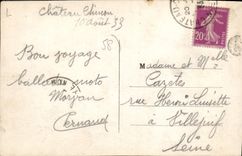 L
Château Chinon
10 août 33
58
Bon voyage
ballade moto
Morvan
Fernand
Madame et Melle
Rue Henri Luisette
à Villejuif
Seine
20c